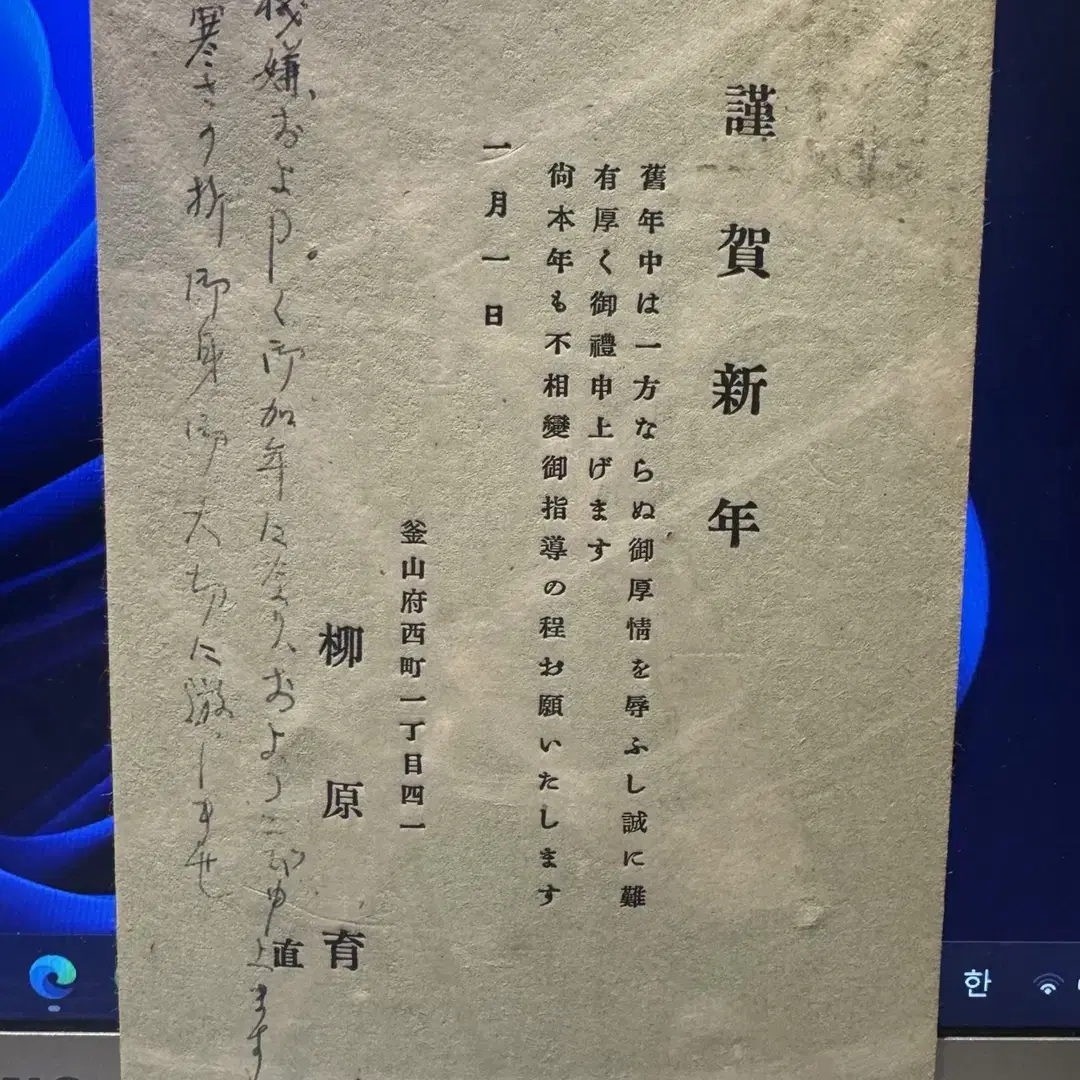 謹賀新年
舊年中は一方ならぬ御厚情を辱ふし誠に難
有厚く御禮申上げます
尙本年も不相變御指導の程お願いたします
一月一日
釜山府西町一丁目四一
柳原育
直
機嫌およろしく御加年になり、およろこび申上ます
寒さの折御身御大切に遊しませ
한